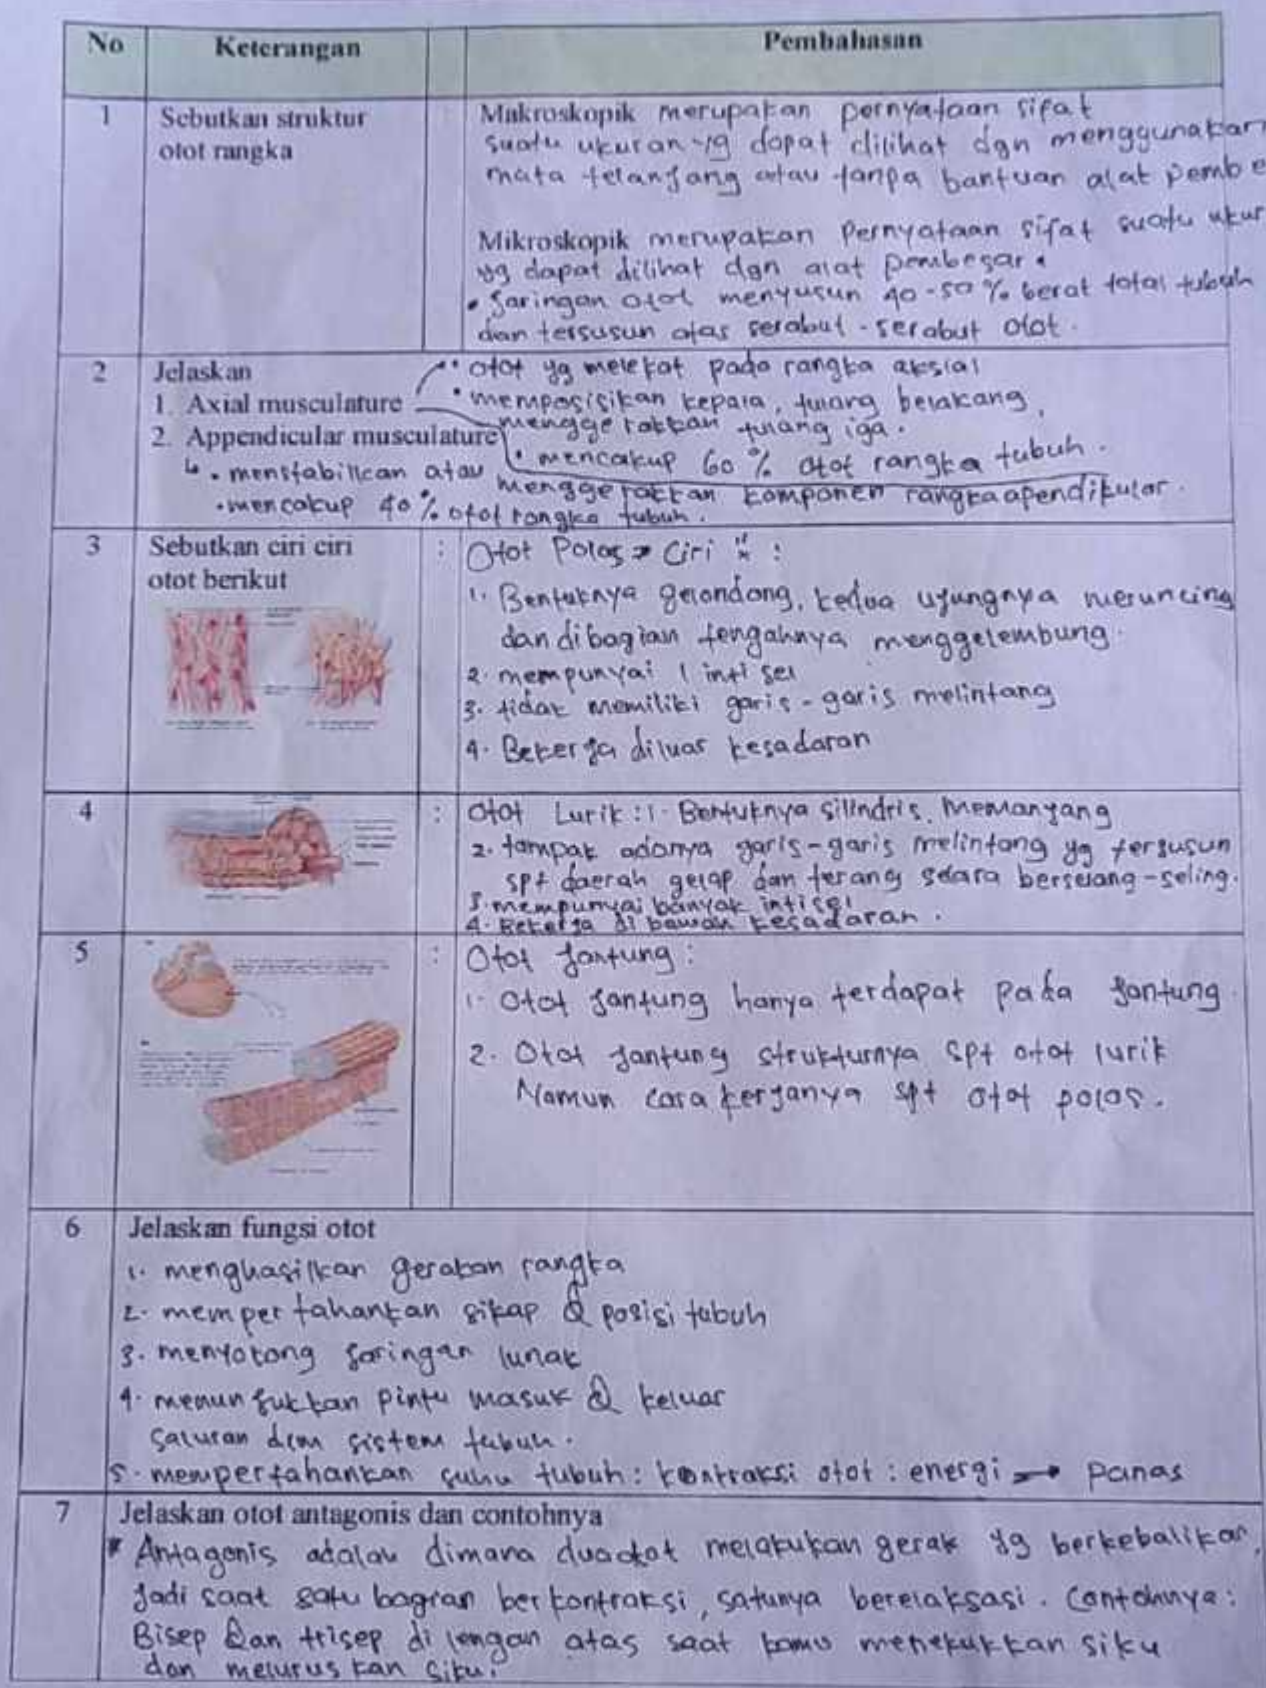 No Keterangan Pembahasan
1 Sebutkan struktur otot rangka
Makroskopik merupakan pernyataan sifat
suatu ukuran yg dapat dilihat dgn menggunakan
mata telanjang atau tanpa bantuan alat pembe
Mikroskopik merupakan Pernyataan sifat suatu ukur
yg dapat dilihat dgn alat pembesar.
• Jaringan otot menyusun 40-50% berat total tubuh
dan tersusun atas serabut-serabut otot.
2 Jelaskan
1. Axial musculature
• otot yg melekat pada rangka aksial
• memposisikan kepala, tulang belakang,
menggerakkan tulang iga.
• mencakup 60% otot rangka tubuh.
2. Appendicular musculature
• menstabilkan atau menggerakkan komponen rangka apendikular.
• mencakup 40% otot rangka tubuh.
3 Sebutkan ciri ciri
otot berikut
: Otot Polos → Ciri " :
1. Bentuknya gelondong, kedua ujungnya meruncing
dan dibagian tengahnya menggelembung.
2. mempunyai 1 inti sel
3. tidak memiliki garis-garis melintang
4. Bekerja diluar kesadaran
4 : Otot Lurik : 1. Bentuknya silindris, memanjang
2. tampak adanya garis-garis melintang yg tersusun
spt daerah gelap dan terang secara berselang-seling.
3. mempunyai banyak inti sel
4. Bekerja di bawah kesadaran.
5 : Otot Jantung :
1. Otot Jantung hanya terdapat pada Jantung.
2. Otot Jantung strukturnya spt otot lurik
Namun cara kerjanya spt otot polos.
6 Jelaskan fungsi otot
1. menghasilkan gerakan rangka
2. mempertahankan sikap & posisi tubuh
3. menyokong jaringan lunak
4. menunjukkan pintu masuk & keluar
saluran dlm sistem tubuh.
5. mempertahankan suhu tubuh : kontraksi otot : energi → panas
7 Jelaskan otot antagonis dan contohnya
* Antagonis adalah dimana dua otot melakukan gerak yg berkebalikan,
Jadi saat satu bagian berkontraksi, satunya berelaksasi. Contohnya :
Bisep dan trisep di lengan atas saat kamu menekukkan siku
dan meluruskan siku.